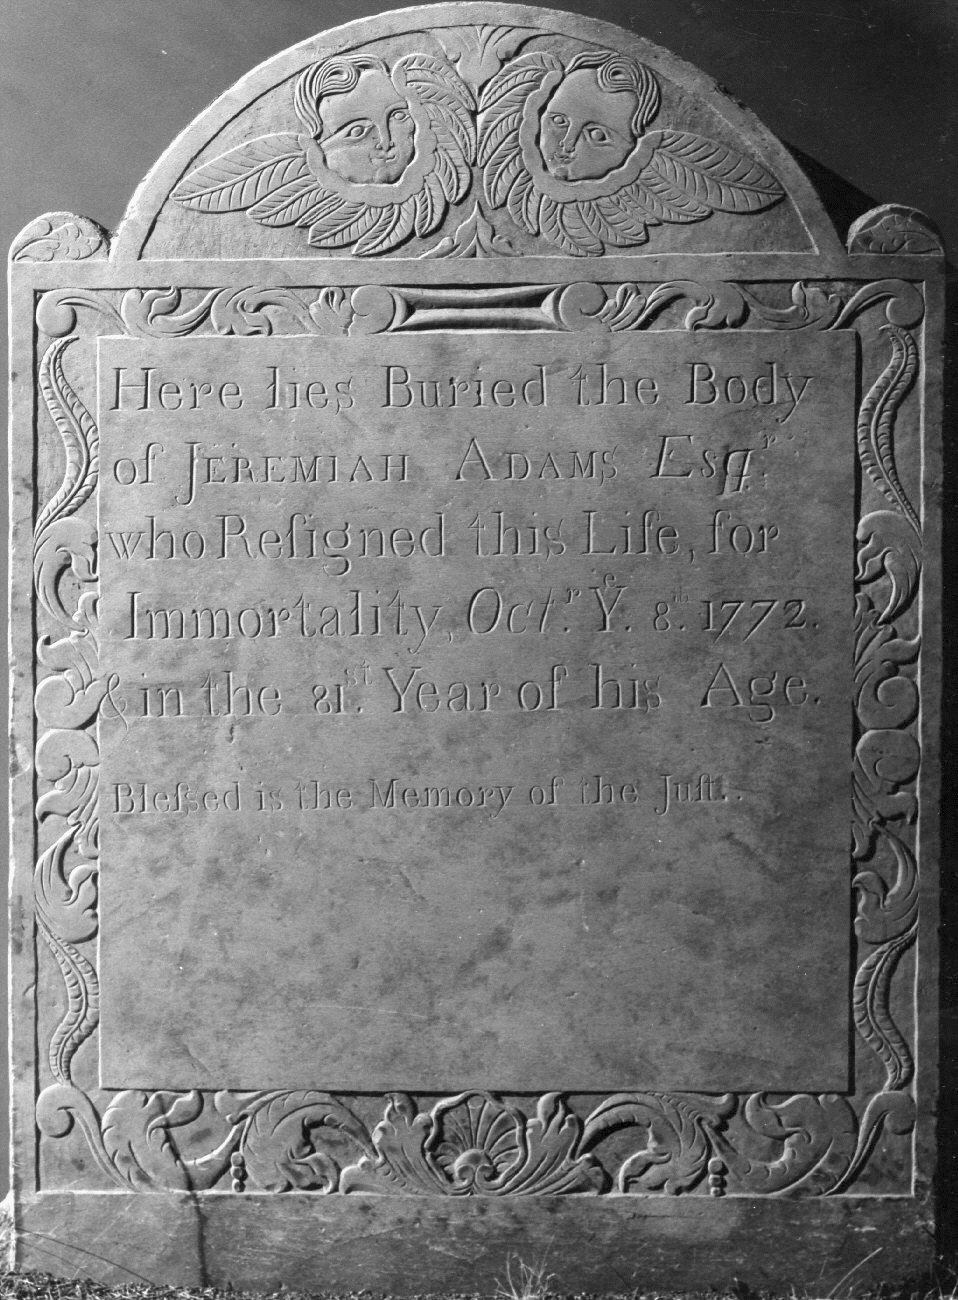 Here lies Buried the Body
of JEREMIAH ADAMS Esqr.
who Reſigned this Life, for
Immortality, Octr. Ye. 8th. 1772.
& in the 81st. Year of his Age.
Bleſsed is the Memory of the Juſt..